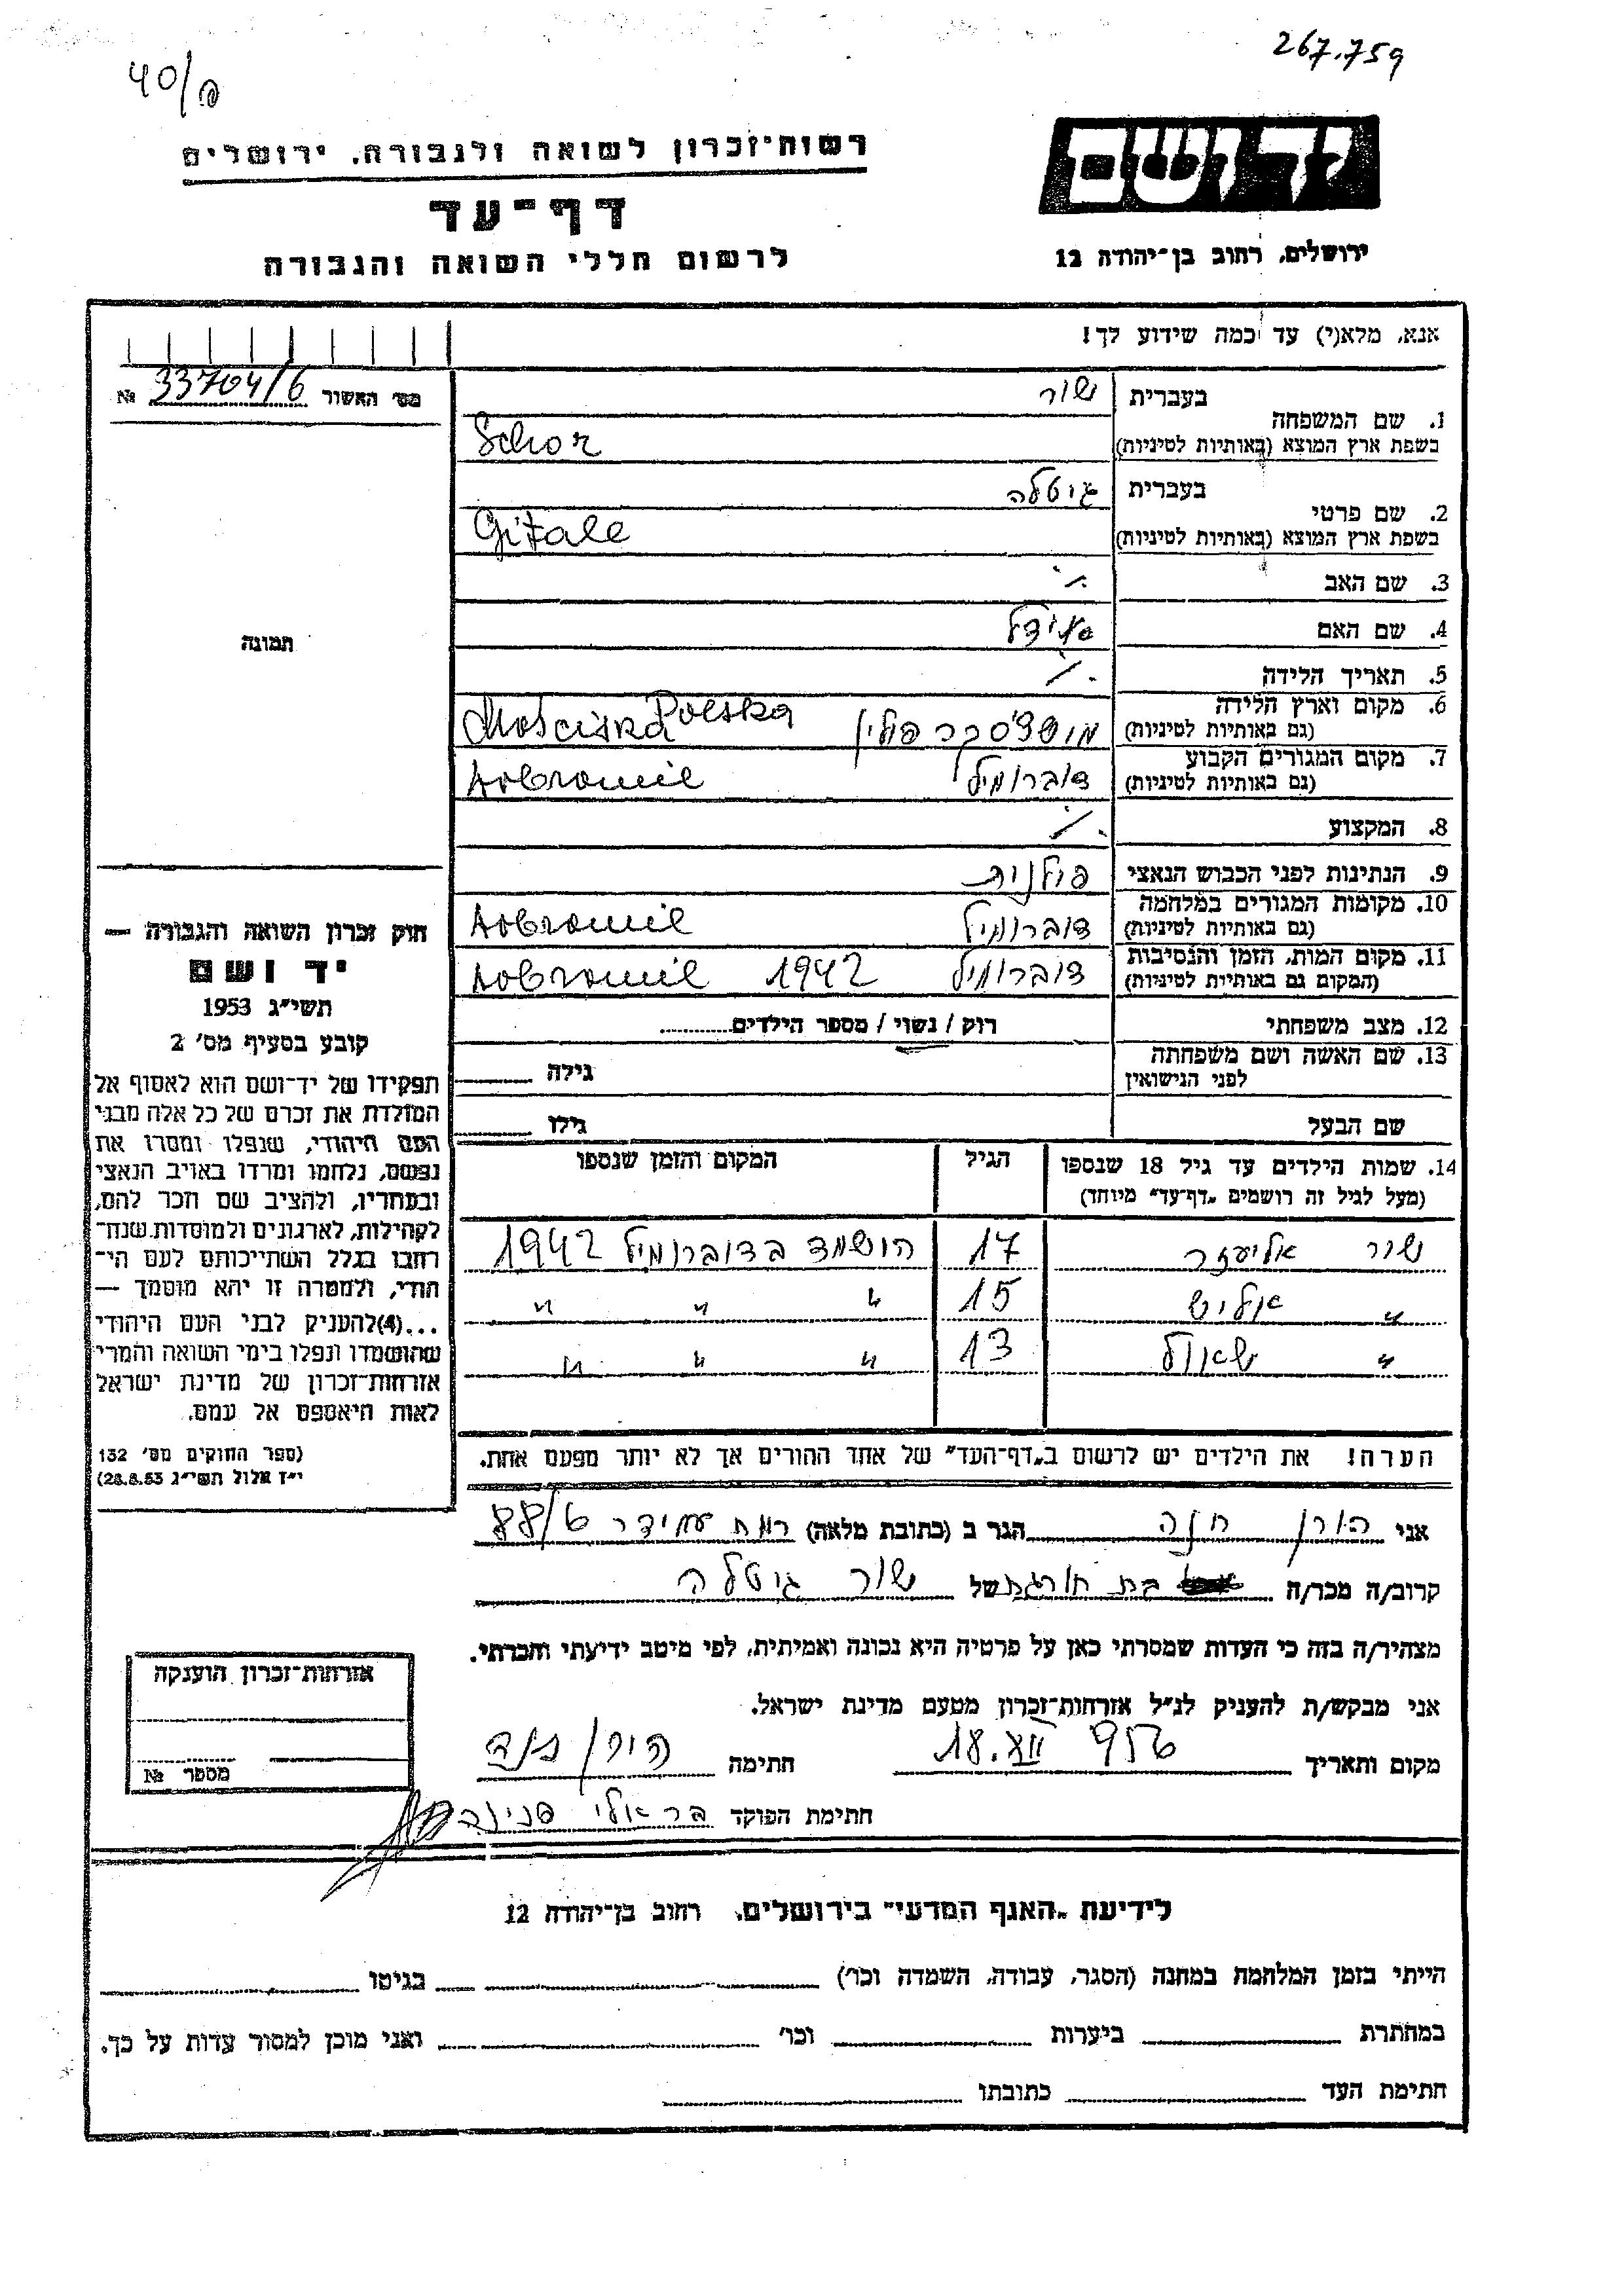 267.759
40/
רשות־זכרון לשואה ולגבורה, ירושלים
דף־עד
לרשום חללי השואה והגבורה
יד ושם
ירושלים, רחוב בן־יהודה 12
אנא, מלא(י) עד כמה שידוע לך!
מס׳ האשור 33704/6 №
תמונה
1. שם המשפחה בעברית שור
בשפת ארץ המוצא (באותיות לטיניות) Schor
2. שם פרטי בעברית גיטלה
בשפת ארץ המוצא (באותיות לטיניות) Gitale
3. שם האב ./.
4. שם האם איידל
5. תאריך הלידה ./.
6. מקום וארץ הלידה
(גם באותיות לטיניות) פולין Mościska Polska
7. מקום המגורים הקבוע
(גם באותיות לטיניות) דוברומיל Dobromil
8. המקצוע ./.
9. הנתינות לפני הכבוש הנאצי פולנית
10. מקומות המגורים במלחמה
(גם באותיות לטיניות) דוברומיל Dobromil
11. מקום המות, הזמן והנסיבות
(המקום גם באותיות לטיניות) דוברומיל 1942 Dobromil
12. מצב משפחתי רוק / נשוי / מספר הילדים
13. שם האשה ושם משפחתה
לפני הנישואין גילה
שם הבעל גילו
14. שמות הילדים עד גיל 18 שנספו הגיל המקום והזמן שנספו
(מעל לגיל זה רושמים „דף־עד״ מיוחד)
שור אליעזר 17 הושמד בדוברומיל 1942
" 15 " " "
" שאול 13 " " "
הערה! את הילדים יש לרשום ב„דף־העד״ של אחד ההורים אך לא יותר מפעם אחת.
חוק זכרון השואה והגבורה —
יד ושם
תשי״ג 1953
קובע בסעיף מס׳ 2
תפקידו של יד־ושם הוא לאסוף אל
המולדת את זכרם של כל אלה מבני
העם היהודי, שנפלו ומסרו את
נפשם, נלחמו ומרדו באויב הנאצי
ובעוזריו, ולהציב שם וזכר להם,
לקהילות, לארגונים ולמוסדות שנח־
רבו בגלל השתייכותם לעם הי־
הודי, ולמטרה זו יהא מוסמך —
...(4)להעניק לבני העם היהודי
שהושמדו ונפלו בימי השואה והמרי
אזרחות־זכרון של מדינת ישראל
לאות היאספם אל עמם.
(ספר החוקים מס׳ 132
י״ז אלול תשי״ג 28.8.53)
אני הורן חנה הגר ב (כתובת מלאה) רמת עמידר 88/ט
קרוב/ה מכר/ה בת חורגת של שור גיטלה
מצהיר/ה בזה כי העדות שמסרתי כאן על פרטיה היא נכונה ואמיתית, לפי מיטב ידיעתי והכרתי.
אני מבקש/ת להעניק לנ״ל אזרחות־זכרון מטעם מדינת ישראל.
מקום ותאריך 18.XII 956 חתימה הורן חנה
חתימת הפוקד בראלי פנינה
אזרחות־זכרון הוענקה
מספר №
לידיעת „האגף המדעי״ בירושלים, רחוב בן־יהודה 12
הייתי בזמן המלחמה במחנה (הסגר, עבודה, השמדה וכו׳) בגיטו
במחתרת ביערות וכו׳ ואני מוכן למסור עדות על כך.
חתימת העד כתובתו